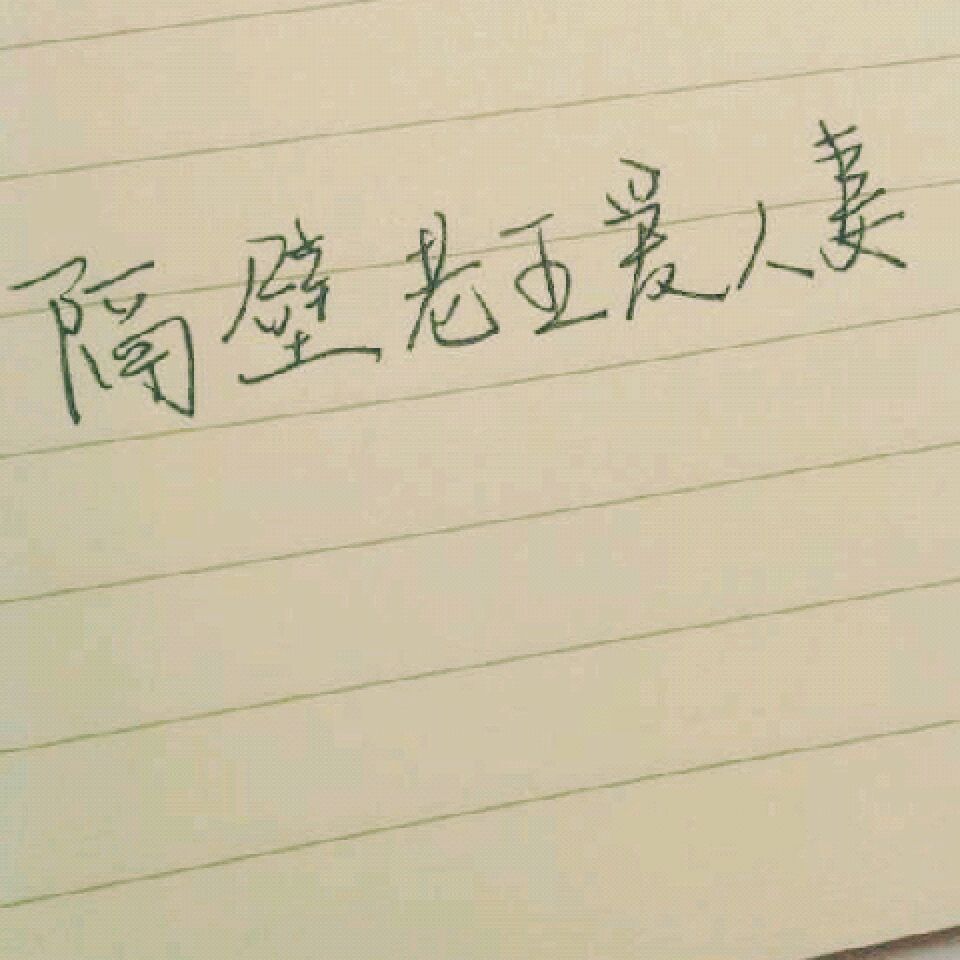 隔壁老王爱人妻